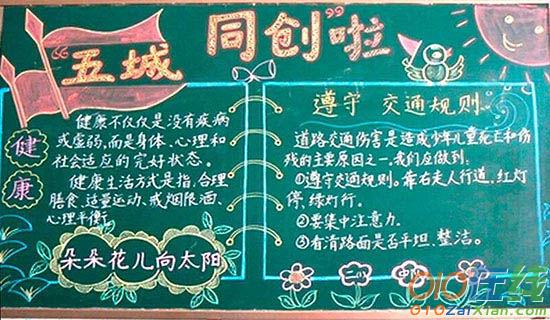 “五城同创”啦
健康
健康不仅仅是没有疾病
或虚弱,而是身体、心理和
社会适应的完好状态。
健康生活方式是指,合理
膳食、适量运动、戒烟限酒、
心理平衡。
朵朵花儿向太阳
遵守 交通规则。
道路交通伤害是造成少年儿童死亡和伤
残的主要原因之一,我们应做到:
①遵守交通规则。靠右走人行道,红灯
停,绿灯行。
②要集中注意力。
③看清路面是否平坦、整洁。
二(1) 中队
010在线
010zaixian.com